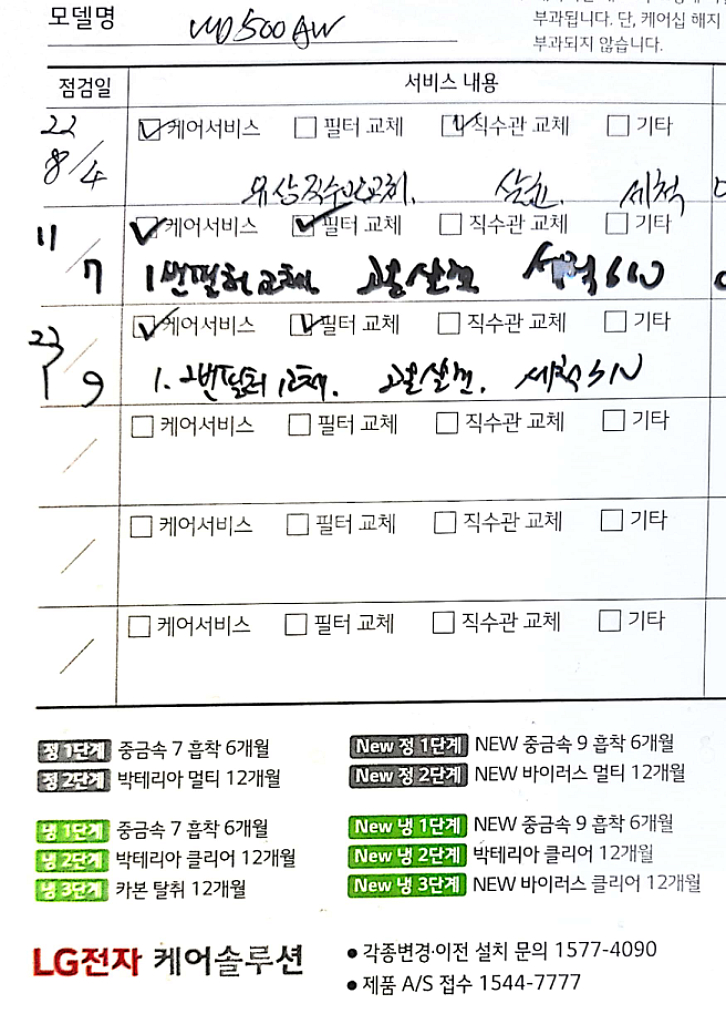 모델명 WD500AW
부과됩니다. 단, 케어십 해지
부과되지 않습니다.
점검일 서비스 내용
22 8/4 케어서비스 필터 교체 직수관 교체 기타
유상직수관교체. 살균. 세척
11/7 케어서비스 필터 교체 직수관 교체 기타
1번필터교체 고온살균
23 1/9 케어서비스 필터 교체 직수관 교체 기타
1.2번필터 교체. 고온살균.
/ 케어서비스 필터 교체 직수관 교체 기타
/ 케어서비스 필터 교체 직수관 교체 기타
/ 케어서비스 필터 교체 직수관 교체 기타
정 1단계 중금속 7 흡착 6개월
정 2단계 박테리아 멀티 12개월
New 정 1단계 NEW 중금속 9 흡착 6개월
New 정 2단계 NEW 바이러스 멀티 12개월
냉 1단계 중금속 7 흡착 6개월
냉 2단계 박테리아 클리어 12개월
냉 3단계 카본 탈취 12개월
New 냉 1단계 NEW 중금속 9 흡착 6개월
New 냉 2단계 박테리아 클리어 12개월
New 냉 3단계 NEW 바이러스 클리어 12개월
LG전자 케어솔루션
• 각종변경·이전 설치 문의 1577-4090
• 제품 A/S 접수 1544-7777